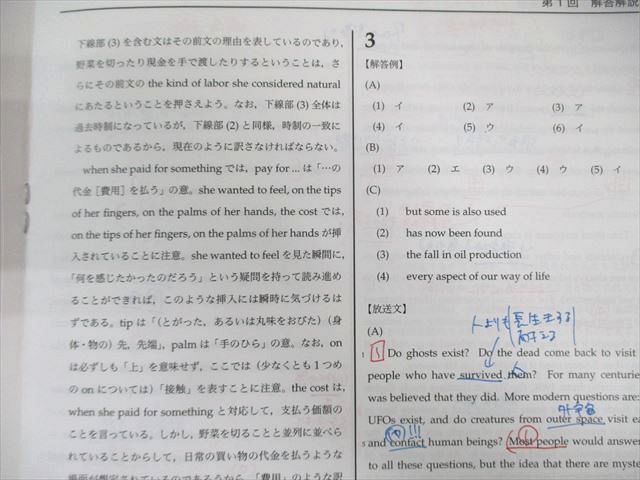 第1回 解答解説
下線部 (3) を含む文はその前文の理由を表しているのであり,
野菜を切ったり現金を手で渡したりするということは,さ
らにその前文の the kind of labor she considered natural
にあたるということを押さえよう。なお,下線部 (3) 全体は
過去時制になっているが,下線部 (2) と同様,時制の一致に
よるものであるから,現在のように訳さなければならない。
when she paid for something では,pay for ... は「…の
代金[費用]を払う」の意。she wanted to feel, on the tips
of her fingers, on the palms of her hands, the cost では,
on the tips of her fingers, on the palms of her hands が挿
入されていることに注意。she wanted to feel を見た瞬間に,
「何を感じたかったのだろう」という疑問を持って読み進め
ることができれば,このような挿入には瞬時に気づけるは
ずである。tip は「(とがった,あるいは丸味をおびた)(身
体・物の)先,先端」,palm は「手のひら」の意。なお,on
は必ずしも「上」を意味せず,ここでは(少なくとも1つめ
の on については)「接触」を表すことに注意。the cost は,
when she paid for something と対応して,支払う価額の
ことを言っている。しかし,野菜を切ることと並列に並べら
れていることからして,日常の買い物の代金を払うような
3
【解答例】
(A)
(1) イ (2) ア (3) ア
(4) イ (5) ウ (6) イ
(B)
(1) ア (2) エ (3) ウ (4) ウ (5) イ
(C)
(1) but some is also used
(2) has now been found
(3) the fall in oil production
(4) every aspect of our way of life
【放送文】
人よりも 長生きする
(A)
1 Do ghosts exist? Do the dead come back to visit
people who have survived them? For many centurie
was believed that they did. More modern questions are:
外宇宙
UFOs exist, and do creatures from outer space visit ea
5 and contact human beings? Most people would answer
to all these questions, but the idea that there are myste